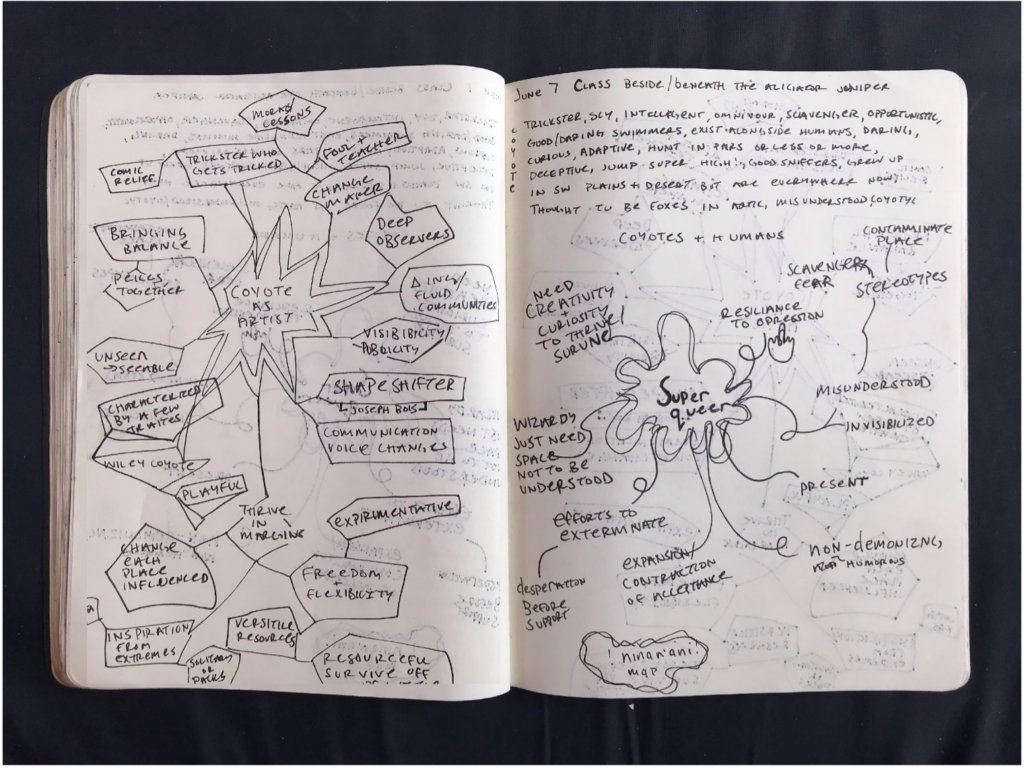 MORAL/
LESSONS
FOUL +
TEACHER
TRICKSTER WHO
GETS TRICKED
COMIC
RELIEF
CHANGE
MAKER
DEEP
OBSERVERS
BRINGING
BALANCE
COYOTE
AS
ARTIST
Δ ING/
FLUID
COMMUNITIES
TOGETHER
VISIBIBICITY/
UNSEEN
→ SEEABLE
SHAPE SHIFTER
JOSEPH BOIS
CHARACTERIZED
BY A FEW
TRAITES
COMMUNICATION
VOICE CHANGES
WILEY COYOTE
PLAYFUL
THRIVE
IN
MARGINS
EXPIRIMENTATIVE
CHANGE
EACH
PLACE
INFLUENCED
FREEDOM
+
FLEXIBILITY
INSPIRATION/
FROM
EXTREMES
VERSITILE
RESOURCES
SOLITARY OR
PACKS
RESOURCEFUL
SURVIVE OFF
JUNE 7 CLASS BESIDE/BENEATH THE ALIGIATOR JUNIPER
COYOTE
TRICKSTER, SLY, INTELLEGENT, OMNIVOUR, SCAVENGER, OPPORTUNISTIC,
GOOD/DARING SWIMMERS, EXIST ALONGSIDE HUMANS, DARING,
CURIOUS, ADAPTIVE, HUNT IN PARS OR LESS OR MORE,
DECEPTIVE, JUMP SUPER HIGH, GOOD SNIFFERS, GREW UP
IN SW PLAINS + DESERT BIT ARE EVERYWHERE NOW,
THOUGHT TO BE FOXES IN ARTIC, MISUNDERSTOOD
COYOTES + HUMANS
CONTAMINATE
PLACE
SCAVENGERS
FEAR
STEREOTYPES
NEED
CREATIVITY
+
CURIOSITY
TO THRIVE/
SURVIVE
RESILIANCE
TO OPRESSION
Super
queer
MISUNDERSTOOD
INVISIBILIZED
WIZARDRY
JUST NEED
SPACE
NOT TO BE
UNDERSTOOD
PRESENT
EFFORTS TO
EXTERMINATE
NON-DEMONIZING,
HUMOROUS
EXPANSION/
CONTRACTION
OF ACCEPTANCE
DESPERATION
BEFORE
SUPPORT
! ninan'ani!
map